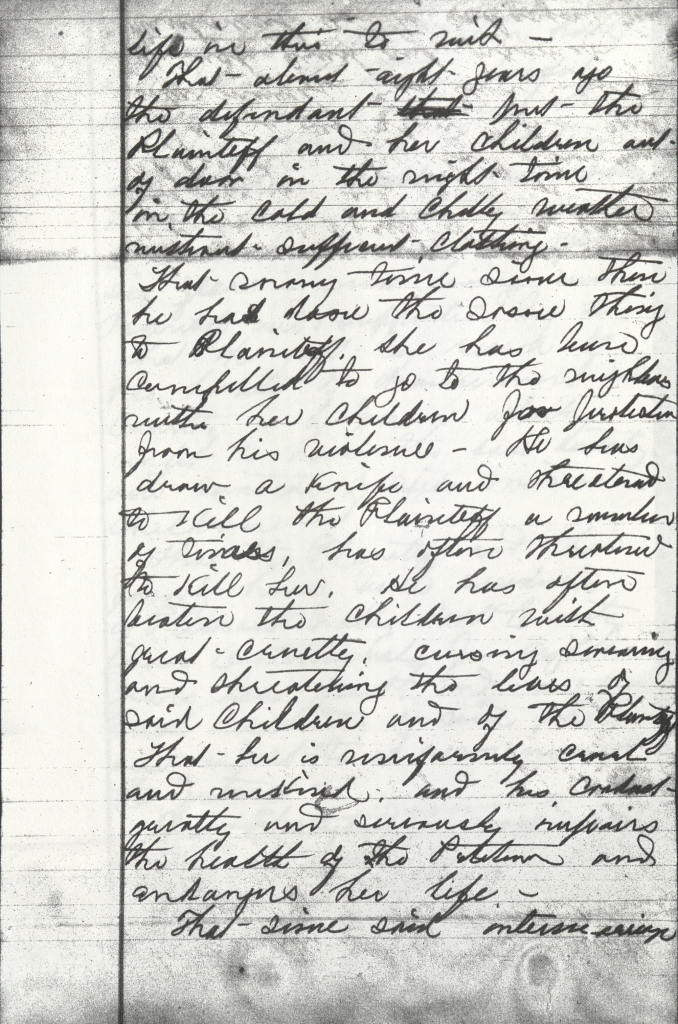 life in this to wit -
That - about - eight - years ago
the defendant - that - put - the
Plainteff and her children out -
of door in the night - time
in the cold and chilly weather
without - sufficient - clothing -
That - many time since then
he has done the same thing
to Plainteff. She has been
compelled to go to the neighbors
with her children for protection
from his violence - He has
draw a Knife and threatened
to Kill the Plainteff a number
of times, has often threatened
to Kill her. He has often
beaten the children with
great - cruelty. cursing swearing
and threatening the lives of
said children and of the Plainteff
That - he is uniformly cruel
and unkind. and his conduct -
greatly and seriously impairs
the health of the Petitioner and
endangers her life -
That - since said intermarriage